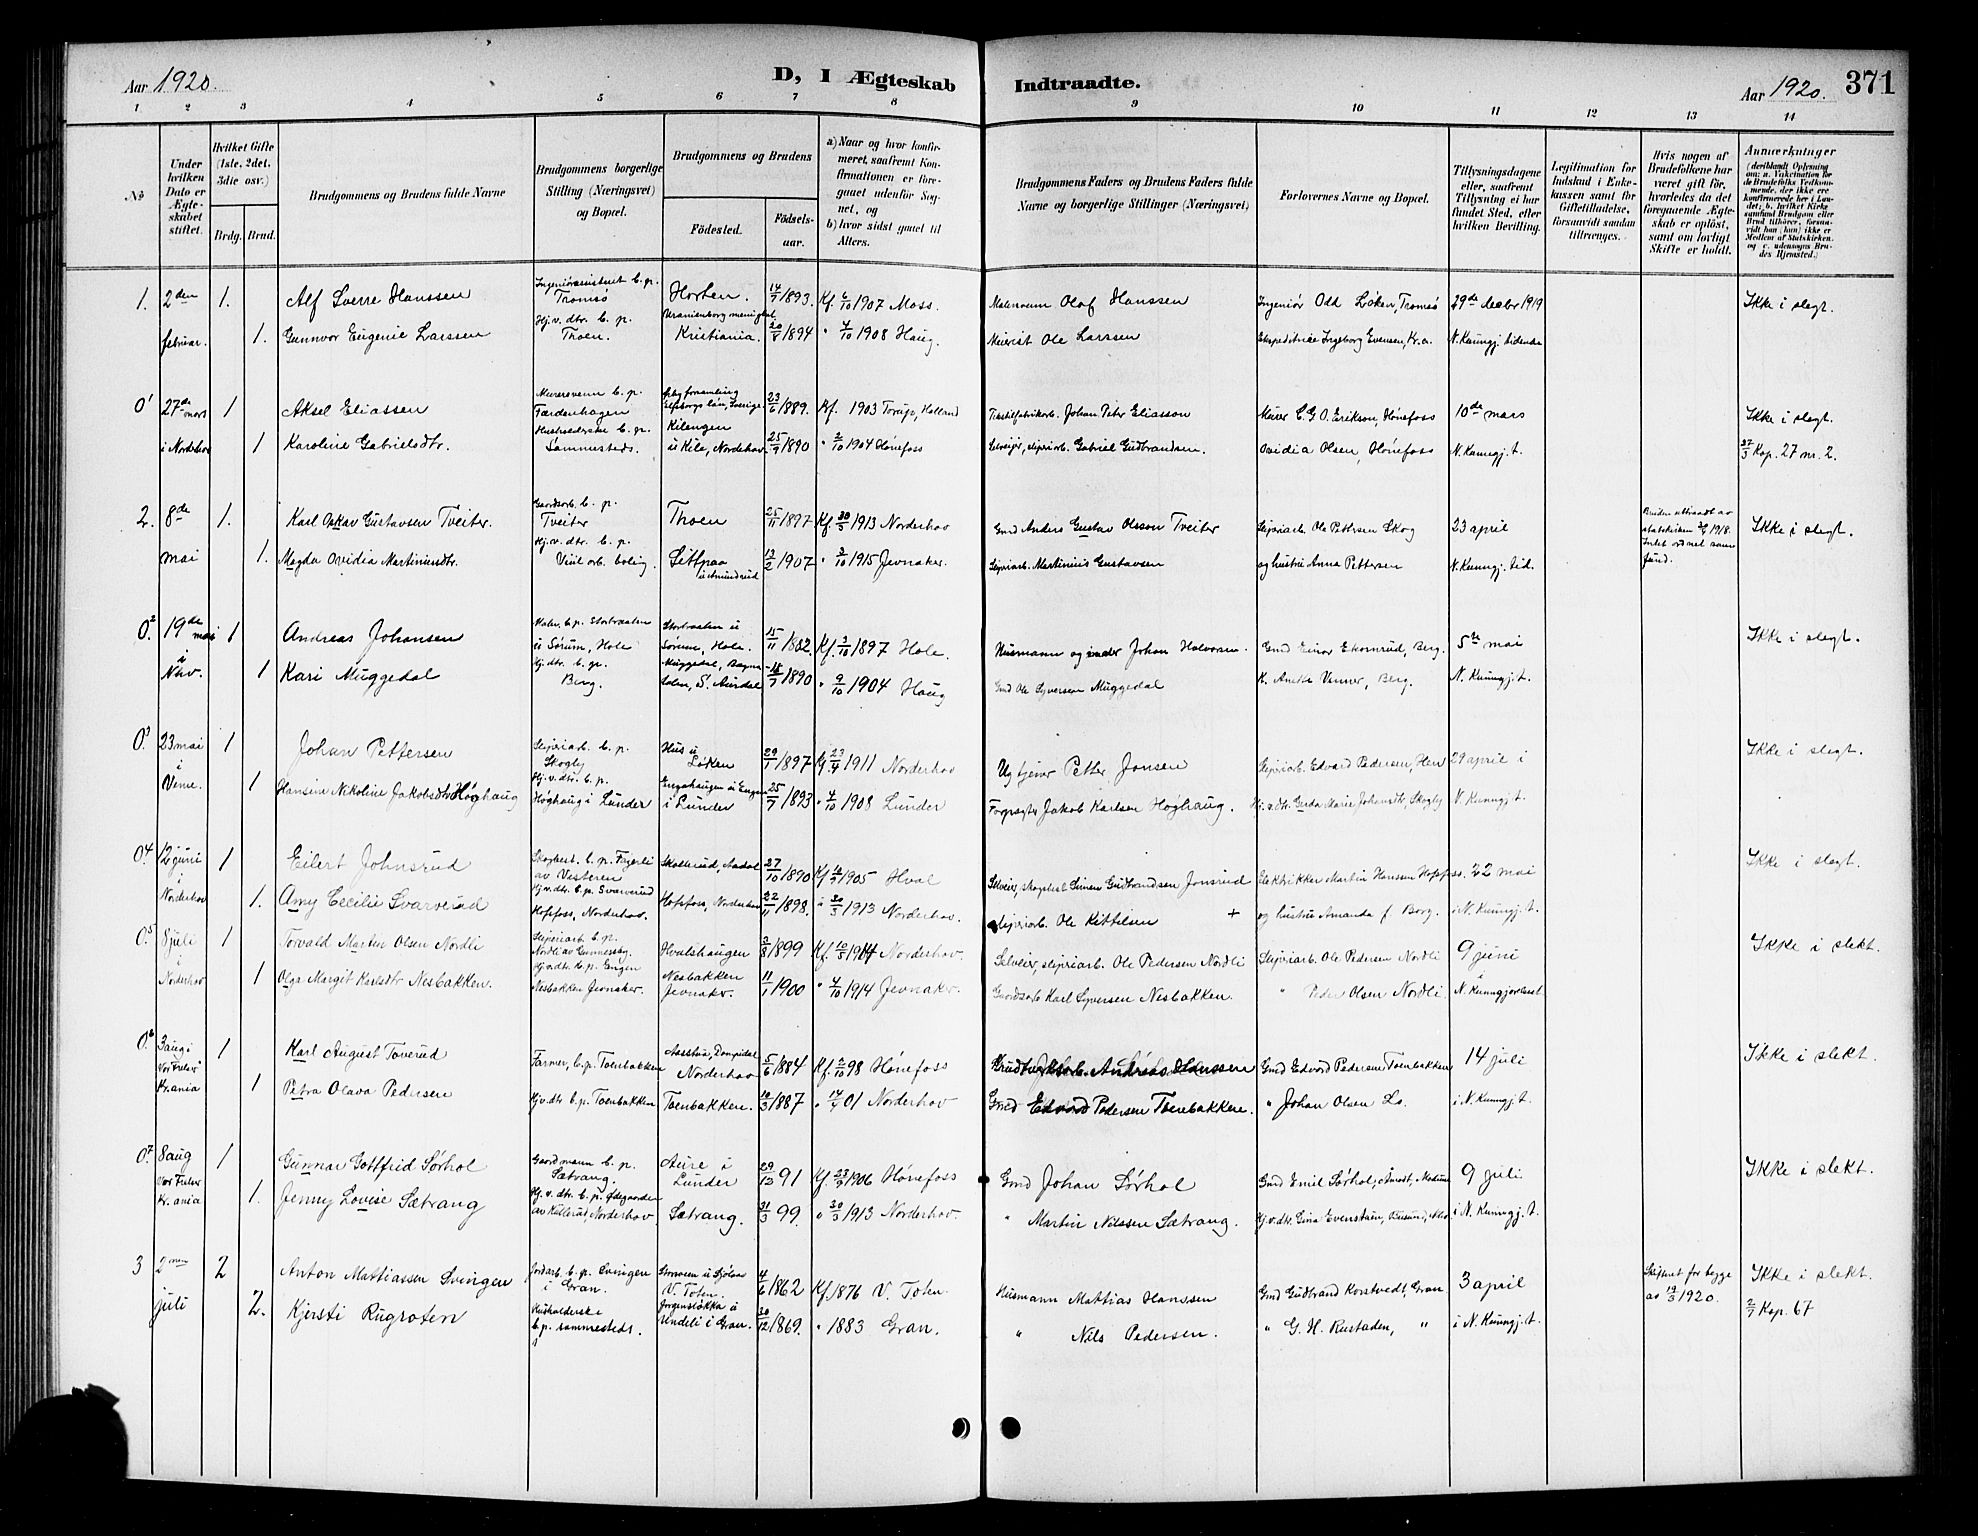 Aar 1920.
D, I Ægteskab Indtraadte.
Aar 1920.
371
1 2 3 4 5 6 7 8 9 10 11 12 13 14
No
Under hvilken Dato er Ægteskabet stiftet.
Hvilket Gifte (1ste, 2det, 3die osv.)
Brdg. Brud.
Brudgommens og Brudens fulde Navne
Brudgommens borgerlige Stilling (Næringsvei) og Bopæl.
Brudgommens og Brudens
Födested.
Födsels-aar.
a) Naar og hvor konfirmeret, saafremt Konfirmationen er foregaaet udenfor Sognet, og
b) hvor sidst gaaet til Alters.
Brudgommens Faders og Brudens Faders fulde Navne og borgerlige Stillinger (Næringsvei)
Forlovernes Navne og Bopæl.
Tillysningsdagene eller, saafremt Tillysning ei har fundet Sted, efter hvilken Bevilling.
Legitimation for Indskud i Enkekassen samt for Giftetilladelse, forsaavidt saadan tiltrænges.
Hvis nogen af Brudefolkene har været gift för, hvorledes da det foregaaende Ægteskab er oplöst, samt om lovligt Skifte er holdt.
Anmærkninger
1. 2den februar. 1.
Alf Sverre Hanssen
Ingeniørassistent b. p. Tromsø
Horten.
14/7 1893.
Kf. 6/10 1907 Moss.
Olaf Hanssen
Ingeniør Odd Løken, Tromsø
29de decbr 1919
Ikke i slegt.
1. Gunnvor Eugenie Larssen
Hj. v. dtr. b. p. Thoen.
Uranienborg menighet Kristiania.
20/8 1894
" 4/10 1908 Haug.
Meierist Ole Larssen
Ekspeditrice Ingeborg Evensen, Kr.a.
N. Kunngj. tidende
0¹ 27de mars i Norderhov 1
Aksel Eliassen
Murersvenn b. p. Færdenhagen
Elfsborgs län, Sverige.
23/6 1889.
Kf. 1903 Torup, Halland
Tekstilfabrikarb. Johan Peter Eliasson
Murer C. G. O. Erikson, Hønefoss
10de mars
Ikke i slegt.
1 Karoline Gabrielsdtr.
Husholderske b. p. Sammesteds.
Kilengen u Kile, Norderhov.
25/9 1890
" 2/10 1904 Hønefoss
Selveier, sliperiarb. Gabriel Gudbrandsen.
Ovidia Olsen, Hønefoss
N. Kunngj. t.
27/3 Kap. 27 nr. 2.
2. 8de mai 1.
Karl Oskar Gustavsen Tveiter.
Gaardsarb. b. p. Tveiter
Thoen
25/11 1897
Kf. 30/3 1913 Norderhov
Gmd Anders Gustav Olsson Tveiter
Sliperiarb. Ole Pettersen Skog
23 april
Ikke i slegt.
1. Magda Ovidia Martiniusdtr.
Hj. v. dtr. b. p. Veiil arb. bolig.
13/2 1907
" 3/10 1915 Jevnaker.
Sliperiarb. Martinius Gustavsen
og hustru Anna Pettersen
N. Kunngj. tid.
0.² 19de mai i Nhv. 1
Andreas Johansen
Maler, b. p. Storbraaten u Sørum, Hole
Storbraaten u Sørum, Hole.
15/11 1882.
Kf. 3/10 1897 Hole.
Husmann og Johan Halvorsen.
Gmd Einar Ekornrud, Berg.
5te mai
Ikke i slegt.
1 Kari Muggedal
Hj. dtr. b. p. Berg.
Muggedal, Bagn, S. Aurdal
18/7 1890
" 9/10 1904 Haug
Gmd Ole Syversen Muggedal
K. Anette Venner, Berg.
N. Kunngj. t.
0.³ 23 mai i Veme. 1
Johan Pettersen
Sliperiarb. b. p. Skogly
Hus u Løken
29/1 1897
Kf. 23/4 1911 Norderhov
Ugtjener Petter Jonsen
Sliperiarb. Edvard Pedersen, Hen
29 april i
Ikke i slegt.
1 Hansine Nikoline Jakobsdtr Høghaug
Hj. v. dtr. b. p. Høghaug i Lunder
Engehaugen u Engen i Lunder
25/7 1893
" 4/10 1908 Lunder
Jakob Karlsen Høghaug.
Hj. v. dtr. Gerda Marie Johansdtr, Skogly
N. Kunngj. t.
0.⁴ 12 juni i Norderhov 1
Eilert Johnsrud
Skogbest. b. p. Fagerli av Vesteren
Skollerud, Aadal
27/10 1890
Kf. 1905 Hval
Selveier, skogbest Simen Gudbrandsen Jonsrud
Elektrikker Martin Hanssen Hofsfoss.
22 mai
Ikke i slegt.
1. Amy Cecilie Svarverud
Hj. v. dtr. b. p. Svarverud Hofsfoss, Norderhov.
Hofsfoss, Norderhov
22/11 1898.
" 30/3 1913 Norderhov.
Sliperiarb. Ole Kittilsen +
og hustru Amanda f. Borg.
i N. Kunngj. t.
0.⁵ 8 juli i Norderhov 1
Torvald Martin Olsen Nordli
Sliperiarb. b. p. Nordli av Gunnersby.
Hvalshaugen
3/8 1899
Kf. 10/5 1914 Norderhov.
Selveier, sliperiarb. Ole Pedersen Nordli
Sliperiarb. Ole Pedersen Nordli
9 juni
Ikke i slekt.
1 Olga Margit Karlsdtr Nesbakken.
Hj. v. dtr. b. p. Engen Nesbakken Jevnaker.
Nesbakken Jevnaker.
11/1 1900
" 4/10 1914 Jevnaker.
Gaardsarb Karl Syversen Nesbakken.
" Peder Olsen Nordli
i N. Kunngjørelsest.
0.⁶ 3 aug i Vor Frelser Kr.ania 1
Karl August Toverud
Farmer, b. p. Toenbakken
Norderhov
5/6 1884
Kf. 98 Hønefoss
Andreas Hanssen
Gmd Edvard Pedersen Toenbakken
14 juli
Ikke i slekt.
1 Petra Olava Pedersen
Hj v. dtr b. p. Toenbakken
Toenbakken.
10/3 1887
" 14/4 01 Norderhov
Gmd Edvard Pedersen Toenbakken.
" Johan Olsen Lo.
i N. Kunngj. t.
0.⁷ 8 aug Vor Frelser Kr.ania 1
Gunnar Gottfrid Sørhol
Gaardmann b. p. Sætrang.
Aure i Lunder
29/12 91
Kf. 23/9 1906 Hønefoss
Gmd Johan Sørhol
Gmd Emil Sørhol, Modum
9 juli
Ikke i slekt.
1. Jenny Lovise Sætrang
Hj. v. dtr. b. p. Ødegaarden av Kellerud, Norderhov
Sætrang.
31/3 99.
" 30/3 1913 Norderhov.
" Martin Nilssen Sætrang.
Hj. v. dtr. Gina Evensteien,
i N. Kunngj. t.
3 2nen juli 2
Anton Mattiassen Svingen
Jordarb. b. p. Svingen i Gran.
V. Toten.
4/6 1862
Kf. 1876 V. Toten.
Husmann Mattias Hanssen
Gmd Gudbrand Korstvedt, Gran
3 april
Skiftet for begge av 19/3 1920.
Ikke i slekt.
2. Kjersti Rugroten
Husholderske b. p. sammesteds.
Jørgensløkka u Undeli i Gran.
30/12 1869.
" 1883 Gran.
" Nils Pedersen.
" G. H. Rustaden, "
i N. Kunngj. t.
2/7 Kap. 67